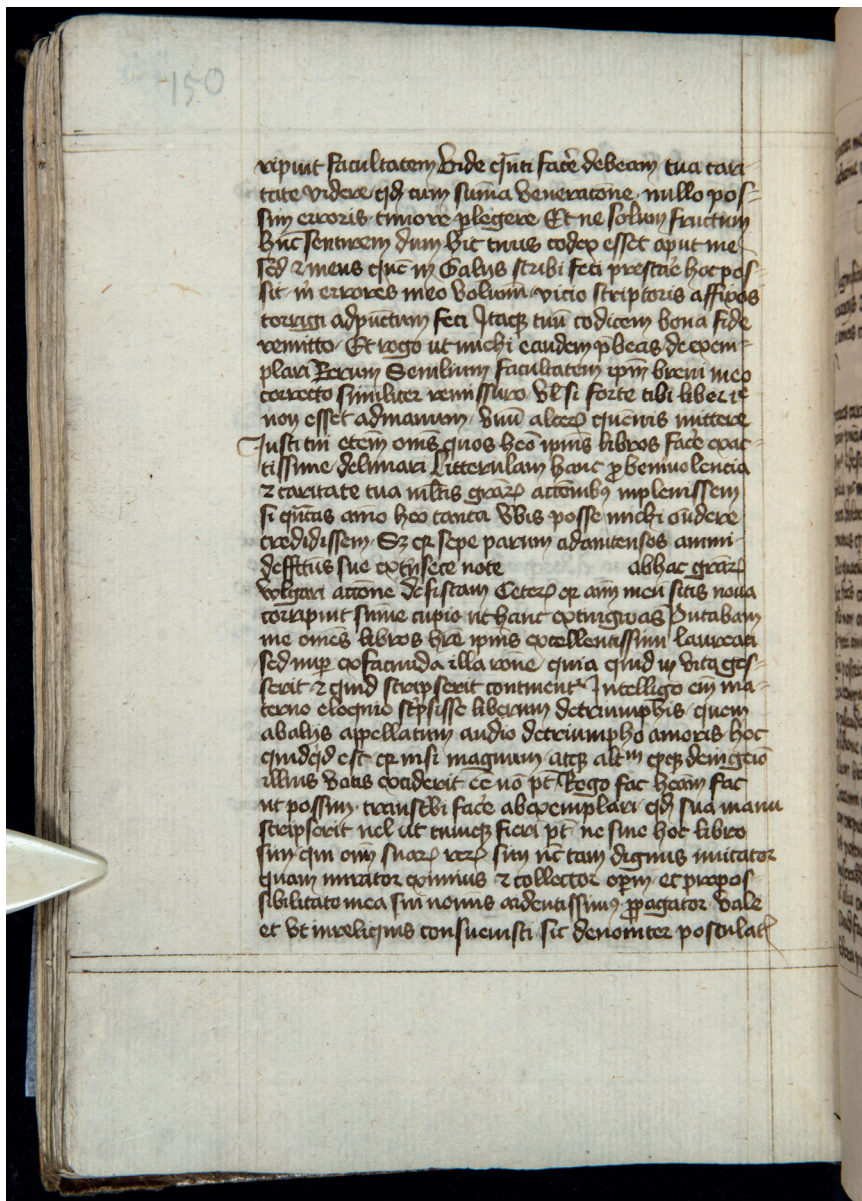 150
ripiut facultatem Vide qͫti facͤe debeam tua cari-
tate videre qd cum suma veneratone nullo pos-
sim erroris timore plegere Et ne solum fructum
hūc sentirem dum hic tuus codex esset aput me
sed ⁊ meus quē in Galiis scribi feci prestare hoc pos-
sit in errores meo volum vicio scriptoris affixos
corrigi ad pūctum feci Itaqꝫ tuū codicem bona fide
remitto Et rogo ut michi eandem pbeas de exem-
plari Rerum Senilium facultatem ipm brevi meo
correcto similiter remissuro Vl si forte tibi liber is
non esset ad manum vnū alterꝝ quemis mittere
Justi tui etem oms quos heo ipius libros face exac-
tissime delimari Litterulam hanc p benivolencia
⁊ caritate tua mltis graꝝ actionibꝰ implenissem
si qntas aīo heo tanta vbis posse michi oñdere
credidissem Sꝫ qꝛ sepe parum adauitensos animi
deffitus sue extīsece note abhac graꝝ
vlgari actione desistam Ceterꝝ qꝛ aīm meū sitis noua
corripiut sūme cupio ut hanc extingwas Putabam
me omēs libros hre ipius excellentissimi laureati
sed nuꝑ ex facunda illa rone quia quid in vita ges-
serit ⁊ quid scripserit continent Intelligo em ma-
terno eloquio scpsisse liberum de triumphis quem
ab aliis appellatum audio de triumpho amoris hoc
quidqd est qꝛ nisi magnum atqꝫ altm qꝫ de ingeio
illius vatis exciderit ee nō pt Rogo fac heam fac
ut possim transcbi face ab exemplari qd sua manu
scripserit vel ut cumqꝫ fieri pt ne sine hoc libro
sim qui oīm suaꝝ reꝝ sim nc tam dignus imitator
quam mirator eximius ⁊ collector opm et pro pos-
sibilitate mea sui nomis ardentissimꝰ ppagator Vale
et vt in reliquis consuevisti sic denoniter postulat